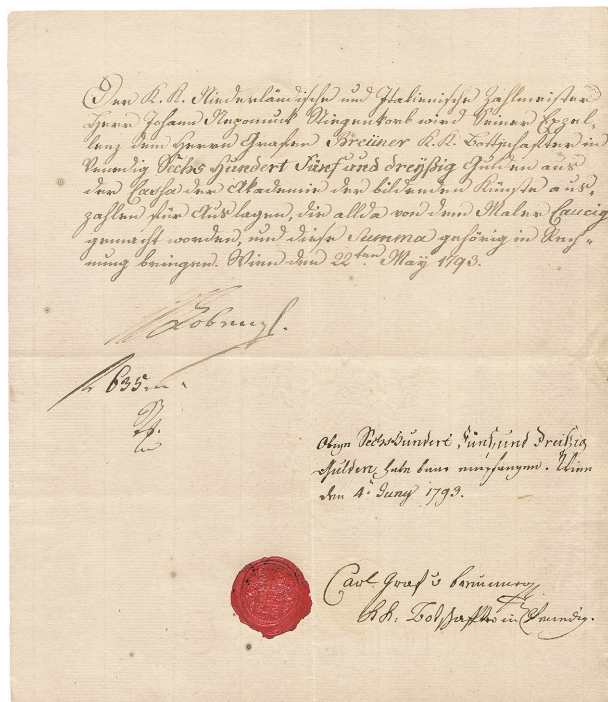 Der K. K. Niederländische und Italienische Zahlmeister
Herr Johann Nepomuck Stiegenkorb wird Seiner Exzel-
lenz dem Herrn Grafen Breüner K. K. Bottschafter in
Venedig Sechs Hundert Fünf und dreyßig Gulden aus
der Cassa der Akademie der bildenden Künste aus-
zahlen für Auslagen, die allda von dem Maler Caucig
gemacht worden, und diese Summa gehörig in Rech-
nung bringen. Wien den 22ten May 1793.
Cobenzl.
635
Obige Sechshundert Fünf und Dreißig
Gulden habe baar empfangen. Wien
den 4. Juny 1793.
Carl Graf v breunner
kk: Botschaffter in Venedig.